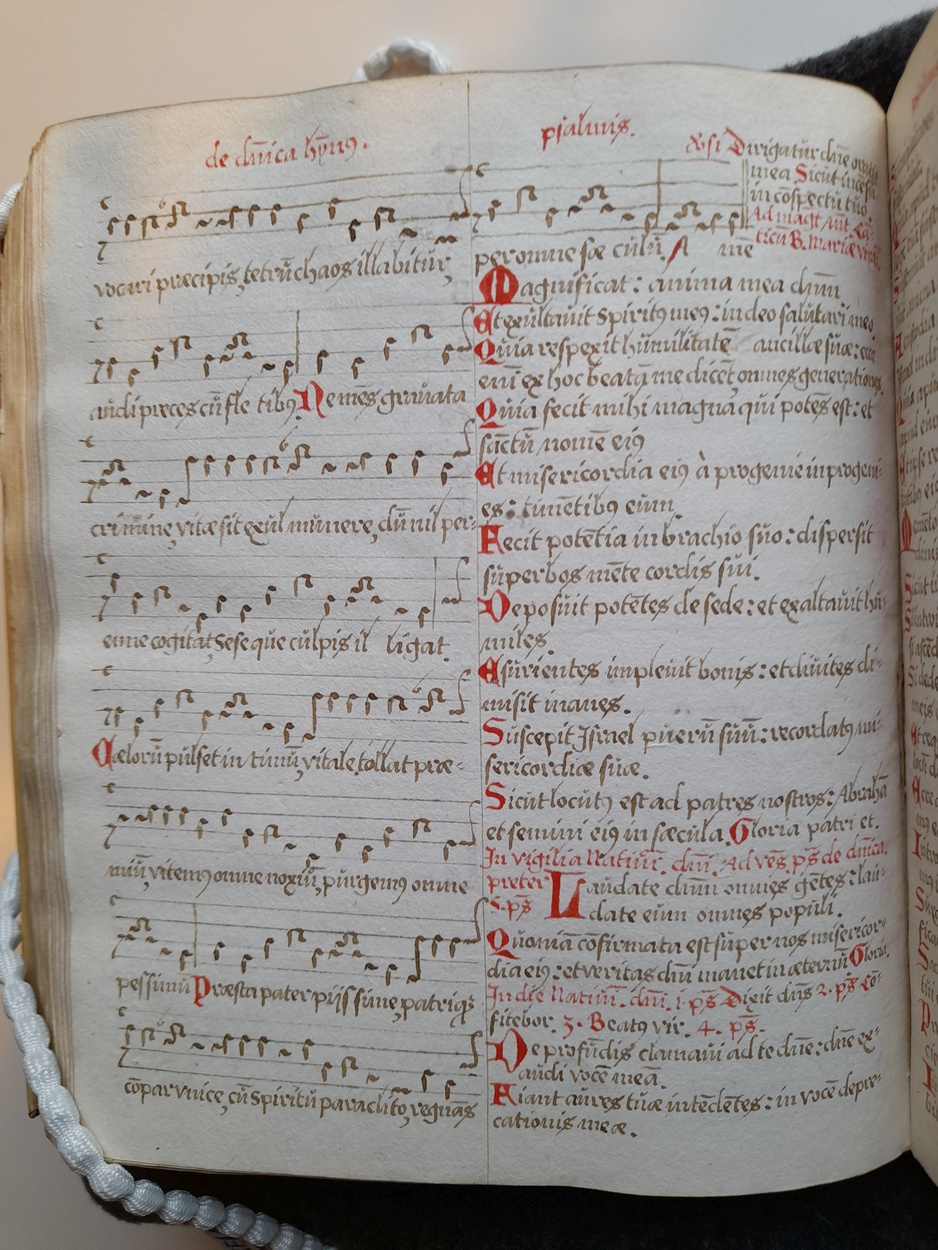 de dn̄ica hȳn9.
vocari præcipis, tetrū chaos illabitur,
audi preces cū fle tibus, Ne mēs gravata
crimine, vitæ sit exul munere, dū nil per-
enne cogitat, Sese que culpis il ligat.
Cælorū pulset intimū, vitale tollat præ-
miū, vitem9 omne noxiū, purgem9 omne
pessimū Præsta pater pijssime, patriq3
cōpar vnice, cū Spiritu paraclito, regnās
psalmis.
per omne sæ culū. A mē
Dirigatur dn̄e
mea Sicut
in cōspectu tuo.
Magnificat: anima mea dn̄m
Et exultavit Spiritus me9: in deo salutari meo
Quia respexit humilitatē ancillæ suæ: ecce
enī ex hoc beatā me dicēt omnes generationes.
Quia fecit mihi magna qui potēs est: et
sāctū nomē ei9
Et misericordia ei9 à progenie in progeni-
es: timētib9 eum
Fecit potētia in brachio suo: dispersit
superbos mēte cordis sui.
Deposuit potētes de sede: et exaltavit hu-
miles.
Esurientes implevit bonis: et divites di-
misit inanes.
Suscepit Israel puerū suū: recordat9 mi-
sericordiæ suæ.
Sicut locut9 est ad patres nostros: Abrahā
et semini ei9 in sæcula. Gloria patri et.
In vigilia Nativit. dn̄i. Ad ves. ps̄ de dn̄ica.
preter 5. ps̄
Laudate dn̄m omnes gētes: lau-
date eum omnes populi.
Quoniā cōfirmata est super nos misericor-
dia ei9: et veritas dn̄i manet in æternū Gloria.
In die Nativit. dn̄i. 1. ps̄ Dixit dn̄s 2. ps̄ Cō-
fitebor. 3. Beatus vir. 4. ps̄.
De profūdis clamavi ad te dn̄e: dn̄e ex-
audi vocē meā.
Fiant aures tuæ intēdētes: in vocē depre-
cationis meæ.